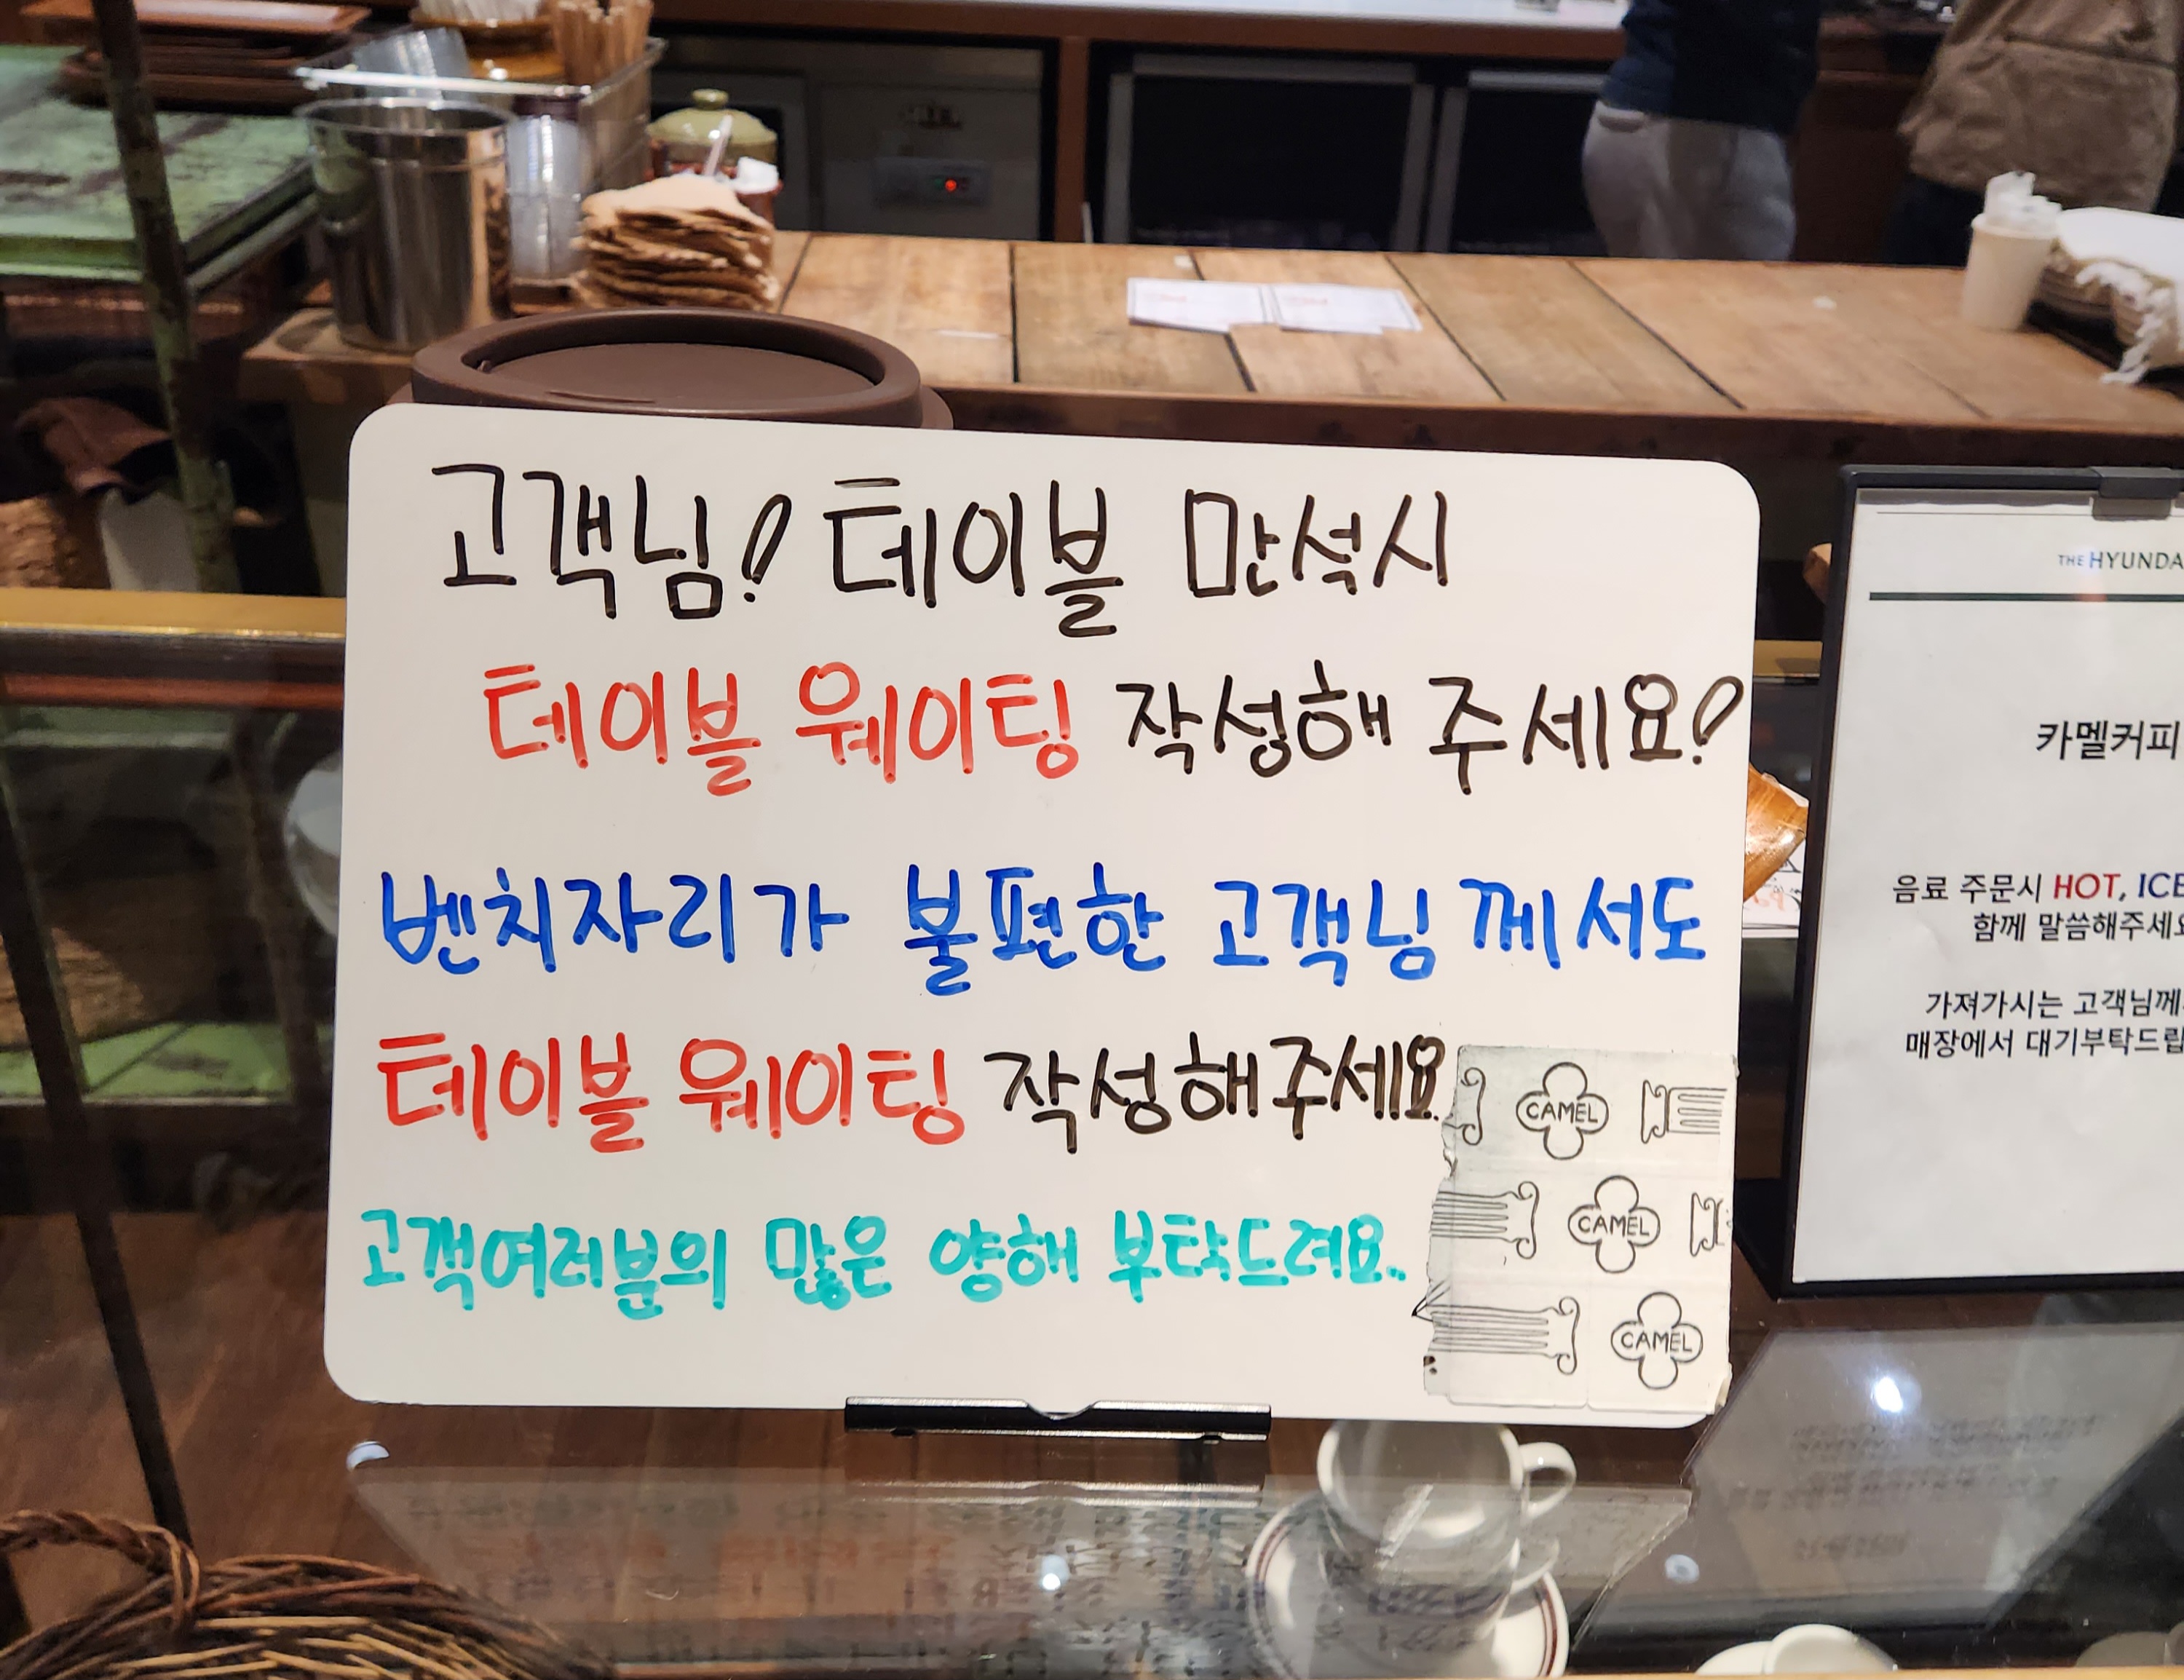 고객님! 테이블 만석시
테이블 웨이팅 작성해 주세요!
벤치자리가 불편한 고객님께서도
테이블 웨이팅 작성해주세요.
고객여러분의 많은 양해 부탁드려요..
CAMEL
CAMEL
CAMEL
THE HYUNDA
카멜커피
음료 주문시 HOT, ICE
함께 말씀해주세요
가져가시는 고객님께
매장에서 대기부탁드립